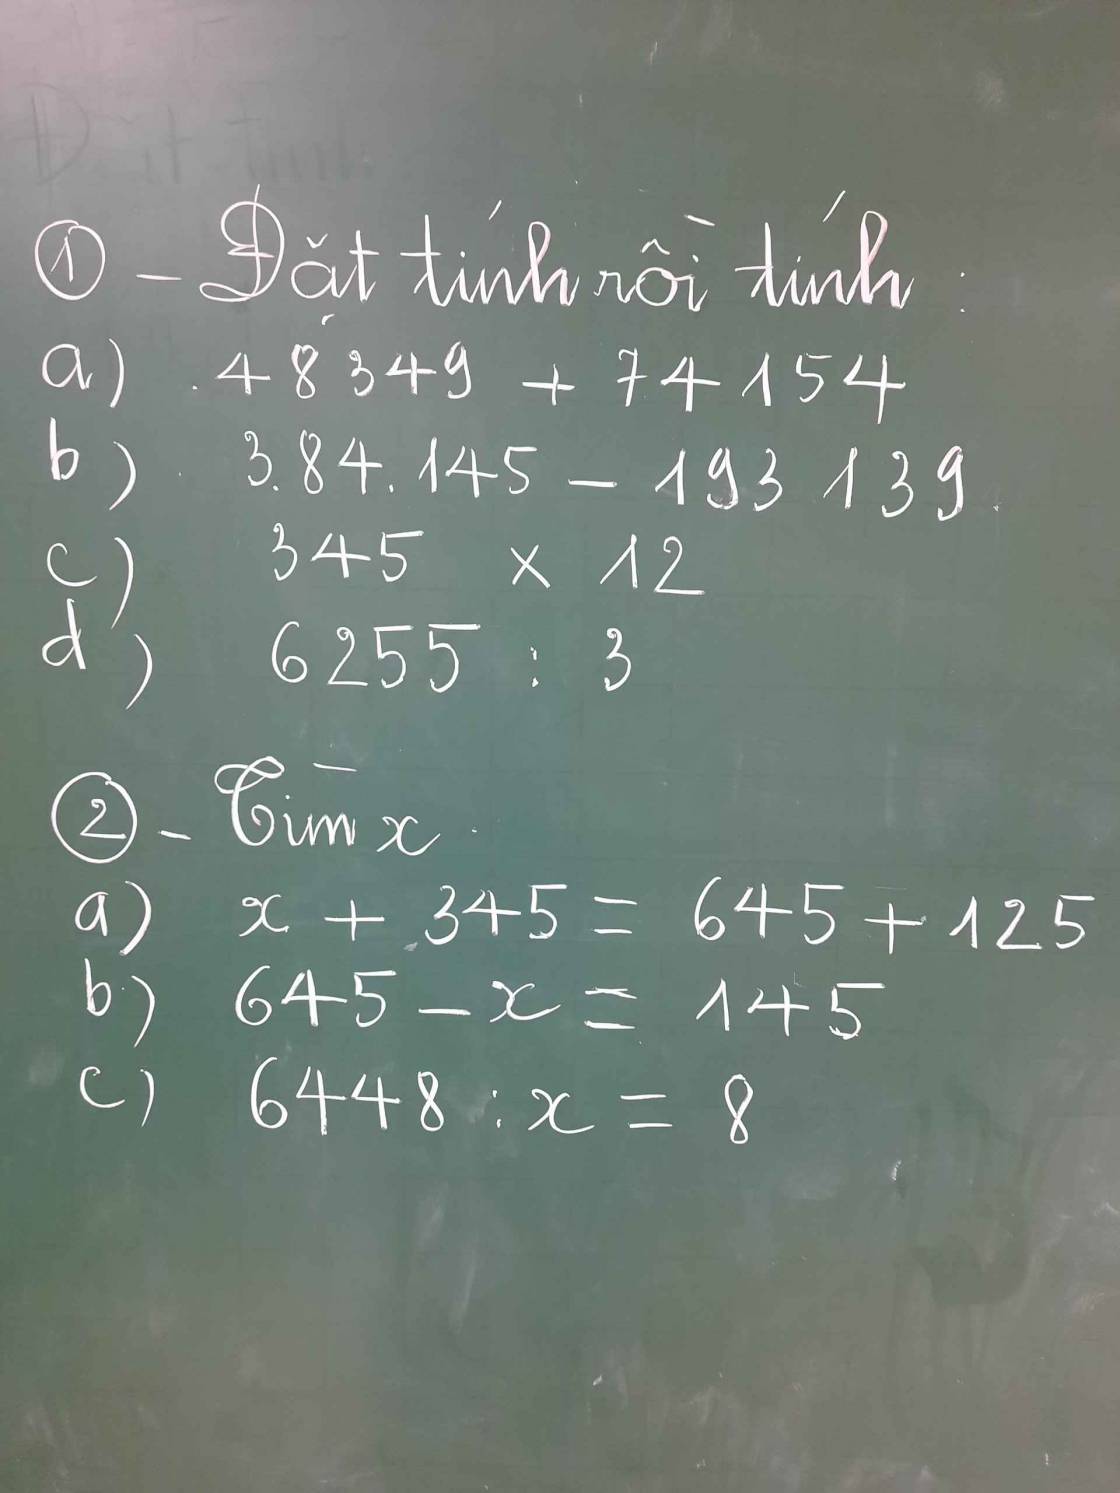 ① - Đặt tính rồi tính :
a) 48349 + 74154
b) 3.84.145 - 193139
c) 345 x 12
d) 6255 : 3
② - Tìm x
a) x + 345 = 645 + 125
b) 645 - x = 145
c) 6448 : x = 8